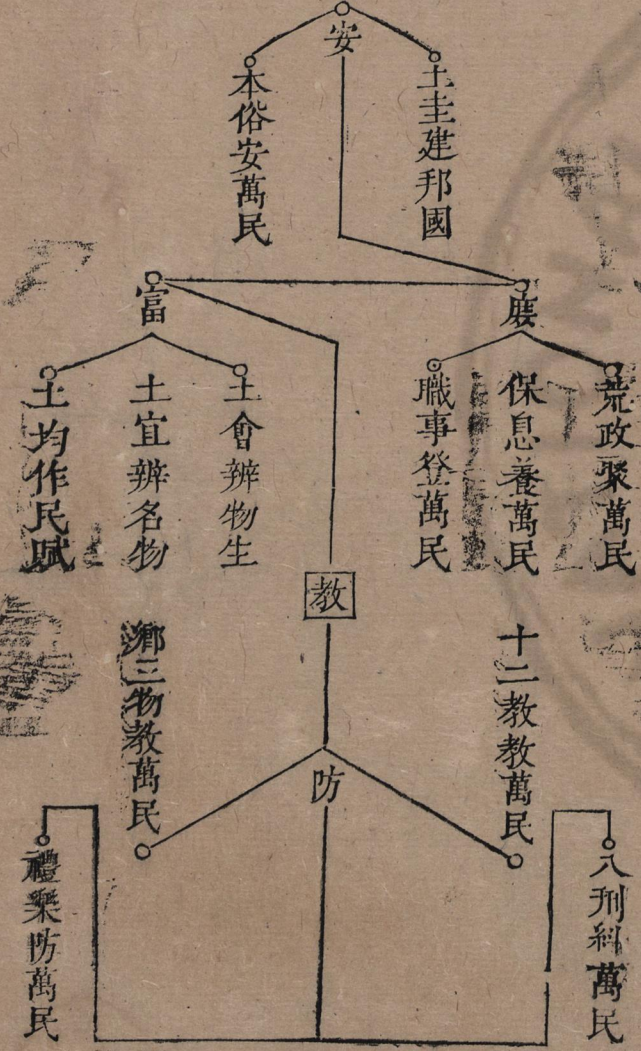 安
土圭建邦國
本俗安萬民
庶
荒政聚萬民
保息養萬民
職事登萬民
富
土會辨物生
土宜辨名物
土均作民賦
教
十二教教萬民
鄉三物教萬民
防
八刑糾萬民
禮樂防萬民